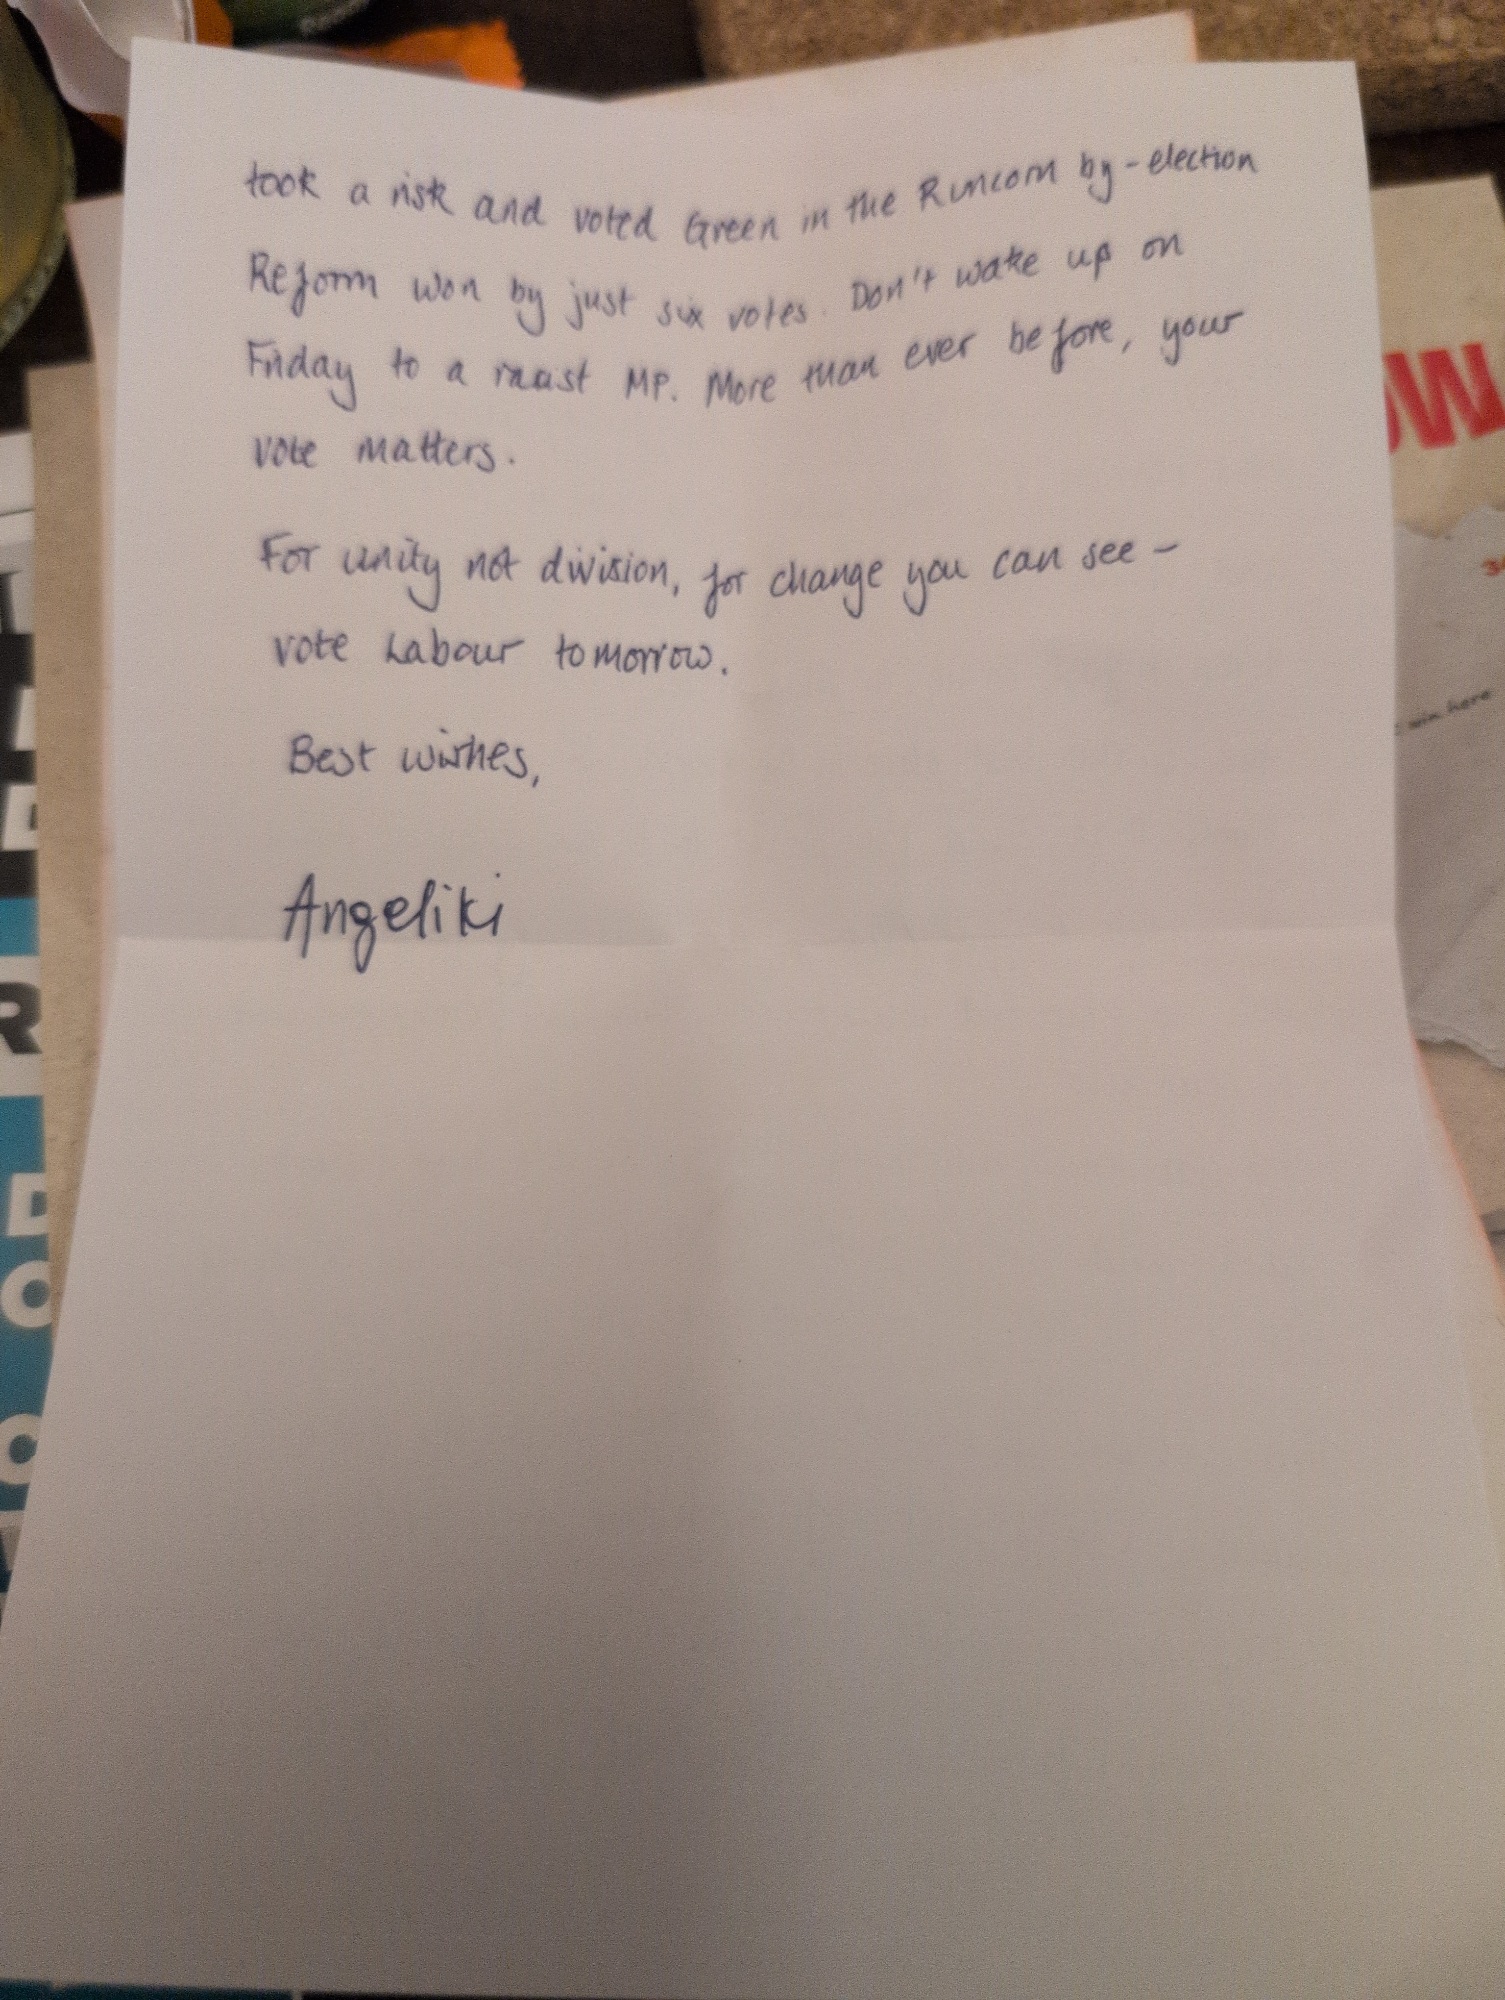 took a risk and voted Green in the Runcorn by-election
Reform won by just six votes. Don't wake up on
Friday to a racist MP. More than ever before, your
vote matters.
For unity not division, for change you can see -
vote Labour tomorrow.
Best wishes,
Angeliki
win here